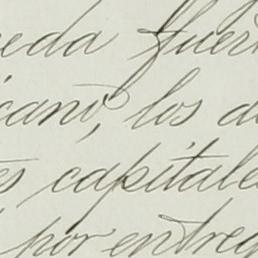 eda fuert
cano, los d
es capitale
por entreg